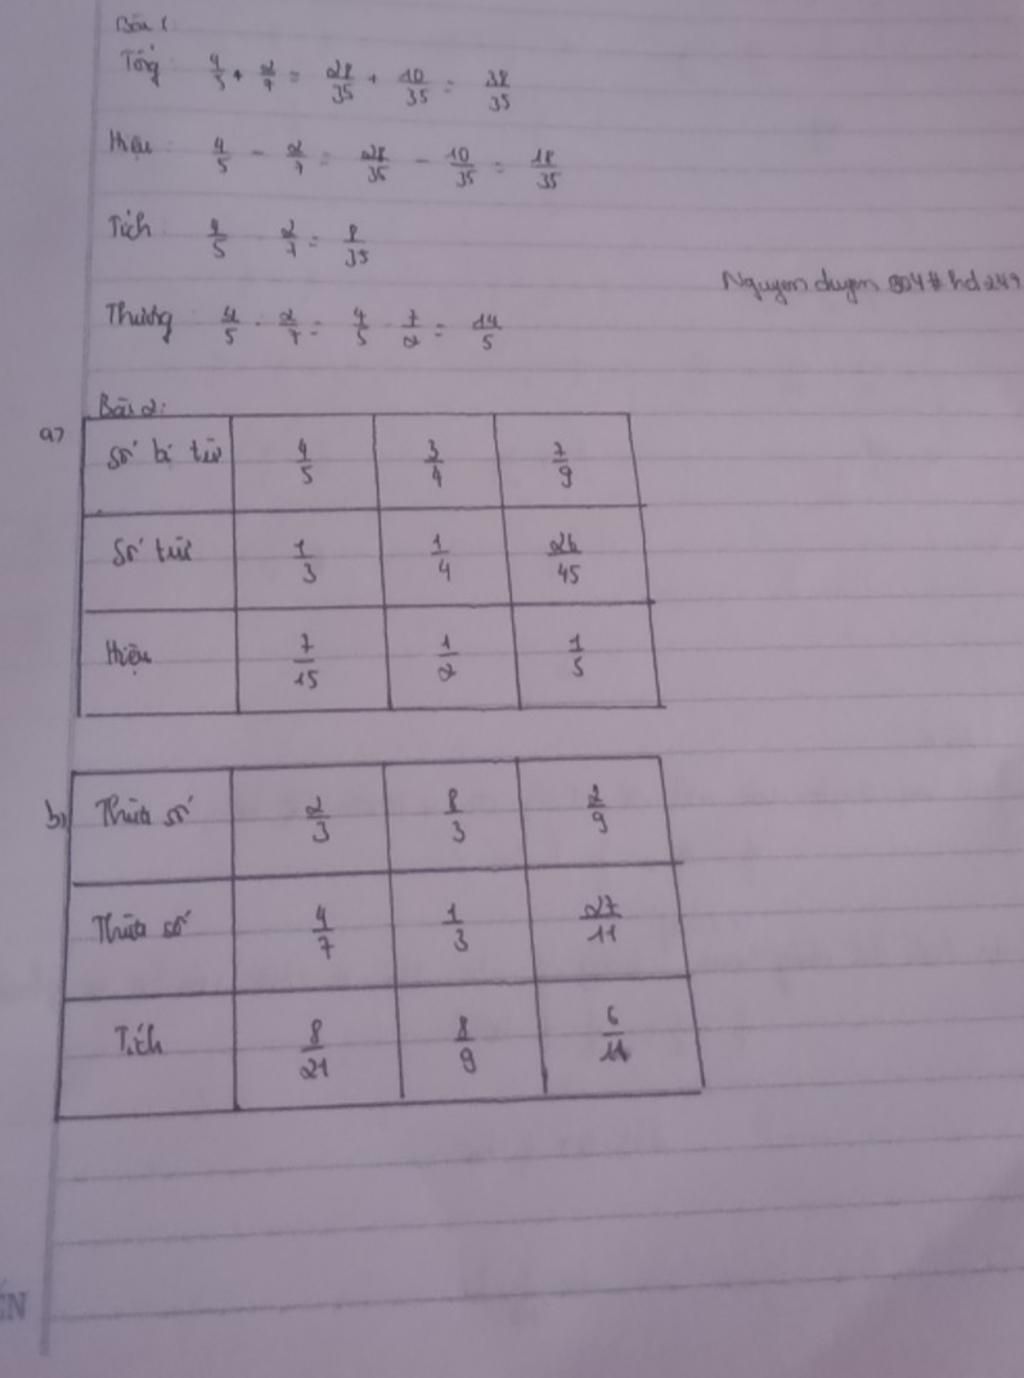 Bài 1:
Tổng: 4/5 + 2/7 = 28/35 + 10/35 = 38/35
Hiệu: 4/5 - 2/7 = 28/35 - 10/35 = 18/35
Tích 4/5 . 2/7 = 8/35
Nguyen duyen 804#hd249
Thương 4/5 : 2/7 = 4/5 . 7/2 = 14/5
Bài 2:
a) Số bị trừ 4/5 3/4 7/9
Số trừ 1/3 1/4 26/45
Hiệu 7/15 1/2 1/5
b) Thừa số 2/3 8/3 2/9
Thừa số 4/7 1/3 27/11
Tích 8/21 8/9 6/11
ẾN